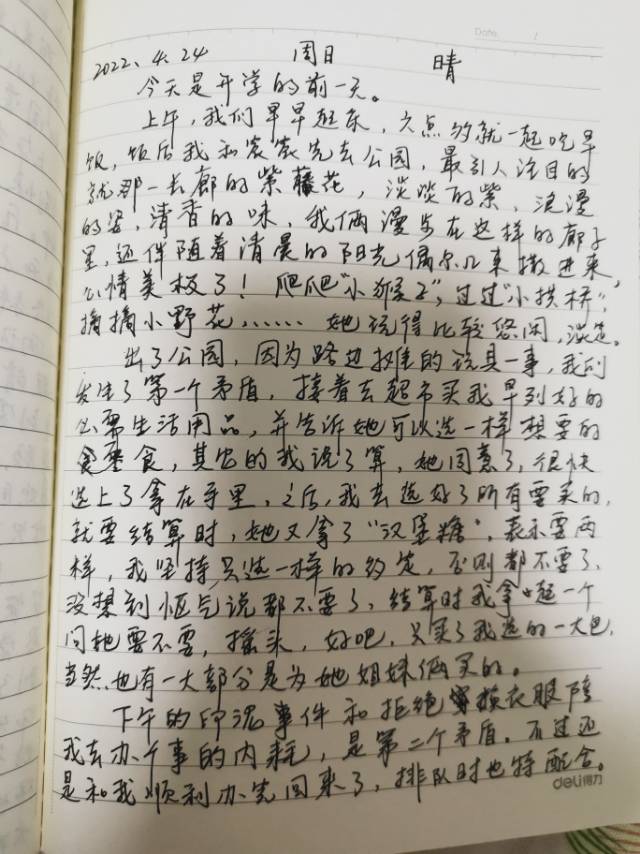 Date. /
2022.4.24 周日 晴
今天是开学的前一天。
上午,我们早早起床,六点多就一起吃早
饭,饭后我和宸宸先去公园,最引人注目的
就那一长廊的紫藤花,淡淡的紫,浪漫
的姿,清香的味,我俩漫步在这样的廊子
里,还伴随着清晨的阳光偶尔几束撒进来,
心情美极了!爬爬“小猴子”,过过“小拱桥”,
摘摘小野花……她玩得比较悠闲,淡定。
出了公园,因为路边摊的玩具一事,我们
发生了第一个矛盾,接着去超市买我早列好的
必需生活用品,并告诉她可以选一样想要的
零食,其它的我说了算,她同意了,很快
选上了拿在手里,之后,我去选好了所有要买的,
就要结算时,她又拿了“汉堡糖”,表示要两
样,我坚持只选一样的约定,否则都不要了,
没想到怄气说都不要了,结算时我拿起一个
问她要不要,摇头,好吧,只买了我选的一大包,
当然也有一大部分是为她姐妹俩买的。
下午的印泥事件和拒绝换衣服陪
我去办个事的内耗,是第二个矛盾。不过还
是和我顺利办完回来了,排队时也特配合。
deli得力